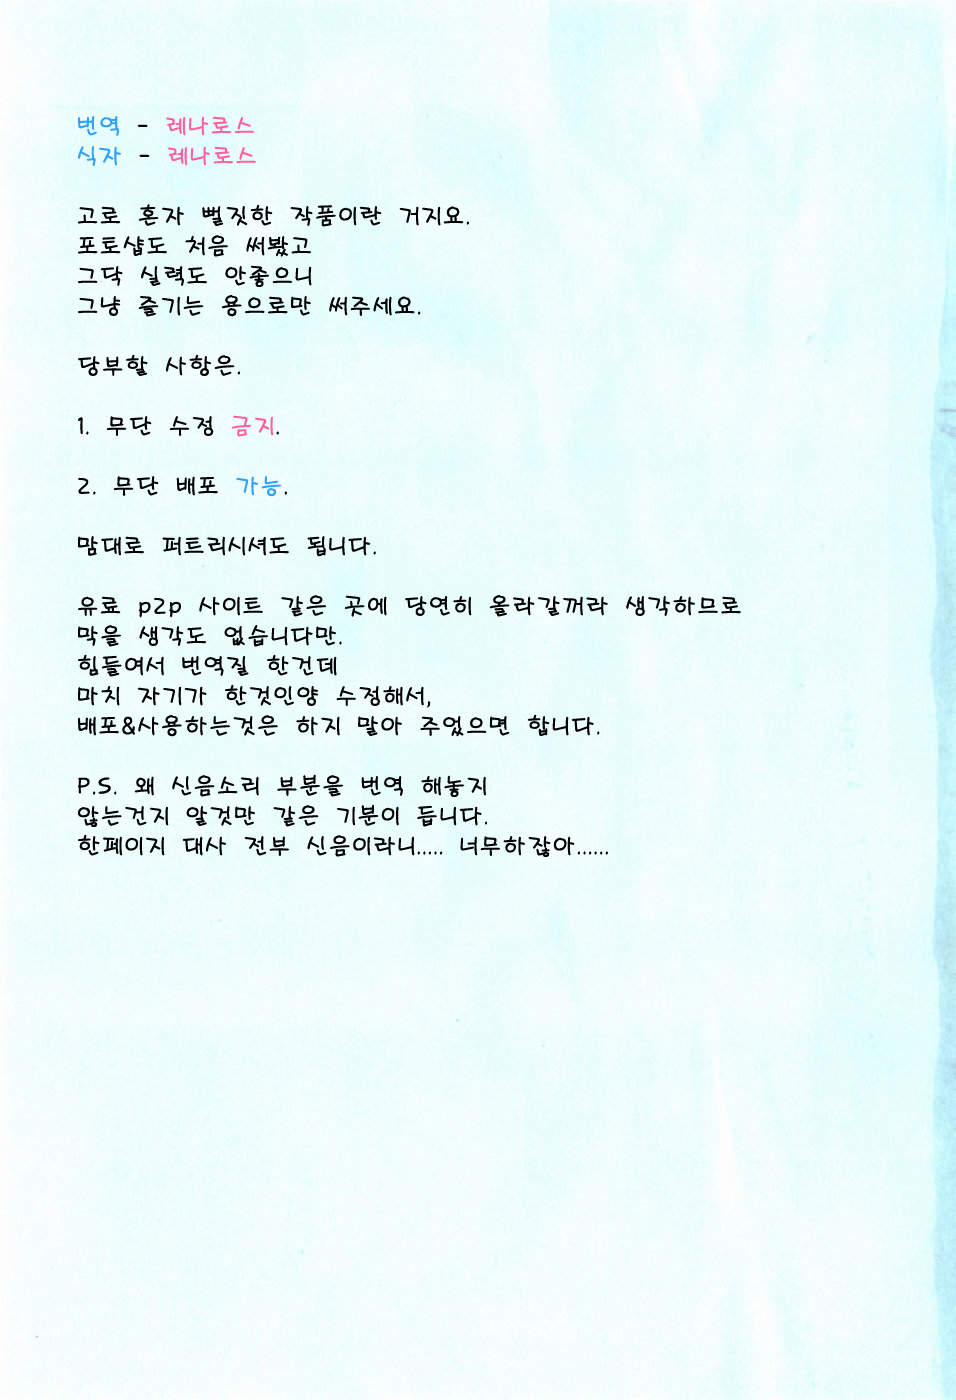 번역 - 레나로스
식자 - 레나로스
고로 혼자 뻘짓한 작품이란 거지요.
포토샵도 처음 써봤고
그닥 실력도 안좋으니
그냥 즐기는 용으로만 써주세요.
당부할 사항은.
1. 무단 수정 금지.
2. 무단 배포 가능.
맘대로 퍼트리시셔도 됩니다.
유료 p2p 사이트 같은 곳에 당연히 올라갈꺼라 생각하므로
막을 생각도 없습니다만.
힘들여서 번역질 한건데
마치 자기가 한것인양 수정해서,
배포&사용하는것은 하지 말아 주었으면 합니다.
P.S. 왜 신음소리 부분을 번역 해놓지
않는건지 알것만 같은 기분이 듭니다.
한페이지 대사 전부 신음이라니..... 너무하잖아......